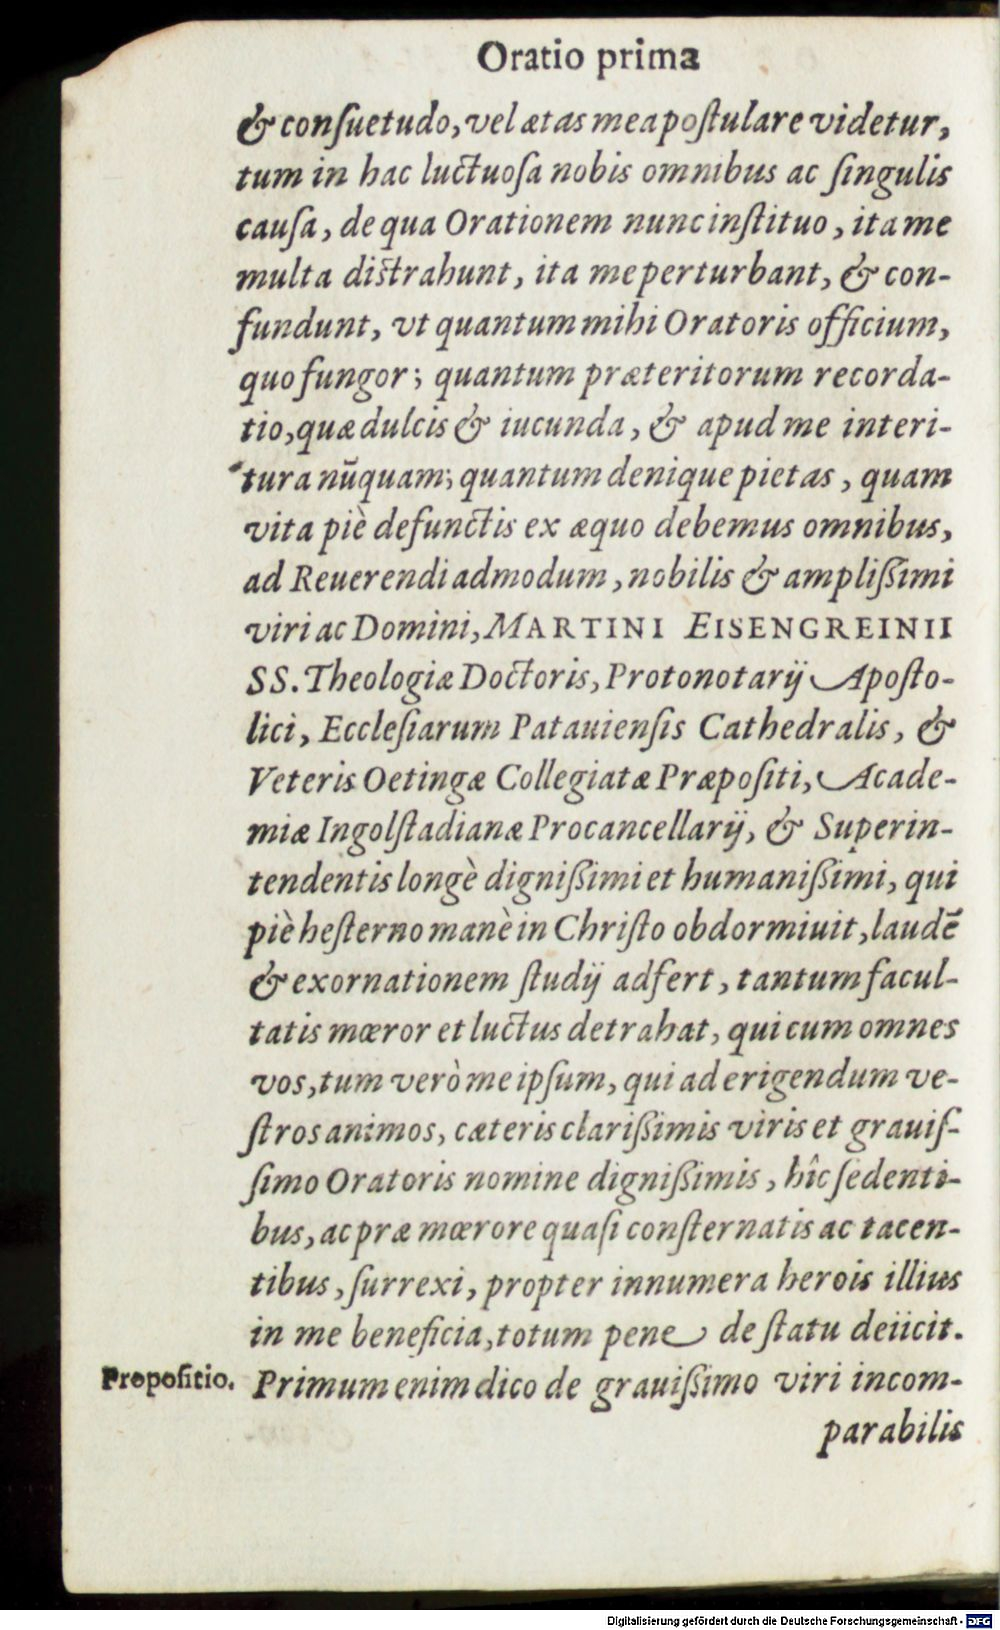 Oratio prima
& conſuetudo, vel ætas mea poſtulare videtur,
tum in hac luctuoſa nobis omnibus ac ſingulis
cauſa, de qua Orationem nunc inſtituo, ita me
multa diſtrahunt, ita me perturbant, & con-
fundunt, vt quantum mihi Oratoris officium,
quo fungor; quantum præteritorum recorda-
tio, quæ dulcis & iucunda, & apud me interi-
tura nūquam; quantum denique pietas, quam
vita piè defunctis ex æquo debemus omnibus,
ad Reuerendi admodum, nobilis & ampliſsimi
viri ac Domini, MARTINI EISENGREINII
SS. Theologiæ Doctoris, Protonotarij Apoſto-
lici, Eccleſiarum Patauienſis Cathedralis, &
Veteris Oetingæ Collegiatæ Præpoſiti, Acade-
miæ Ingolſtadianæ Procancellarij, & Superin-
tendentis longè digniſsimi et humaniſsimi, qui
piè heſterno manè in Chriſto obdormiuit, laudē
& exornationem ſtudij adfert, tantum facul-
tatis mœror et luctus detrahat, qui cum omnes
vos, tum verò me ipſum, qui ad erigendum ve-
ſtros animos, cæteris clariſsimis viris et grauiſ-
ſimo Oratoris nomine digniſsimis, hîc ſedenti-
bus, ac præ mœrore quaſi conſternatis ac tacen-
tibus, ſurrexi, propter innumera herois illius
in me beneficia, totum pene de ſtatu deiicit.
Propoſitio. Primum enim dico de grauiſsimo viri incom-
parabilis
Digitalisierung gefördert durch die Deutsche Forschungsgemeinschaft - DFG